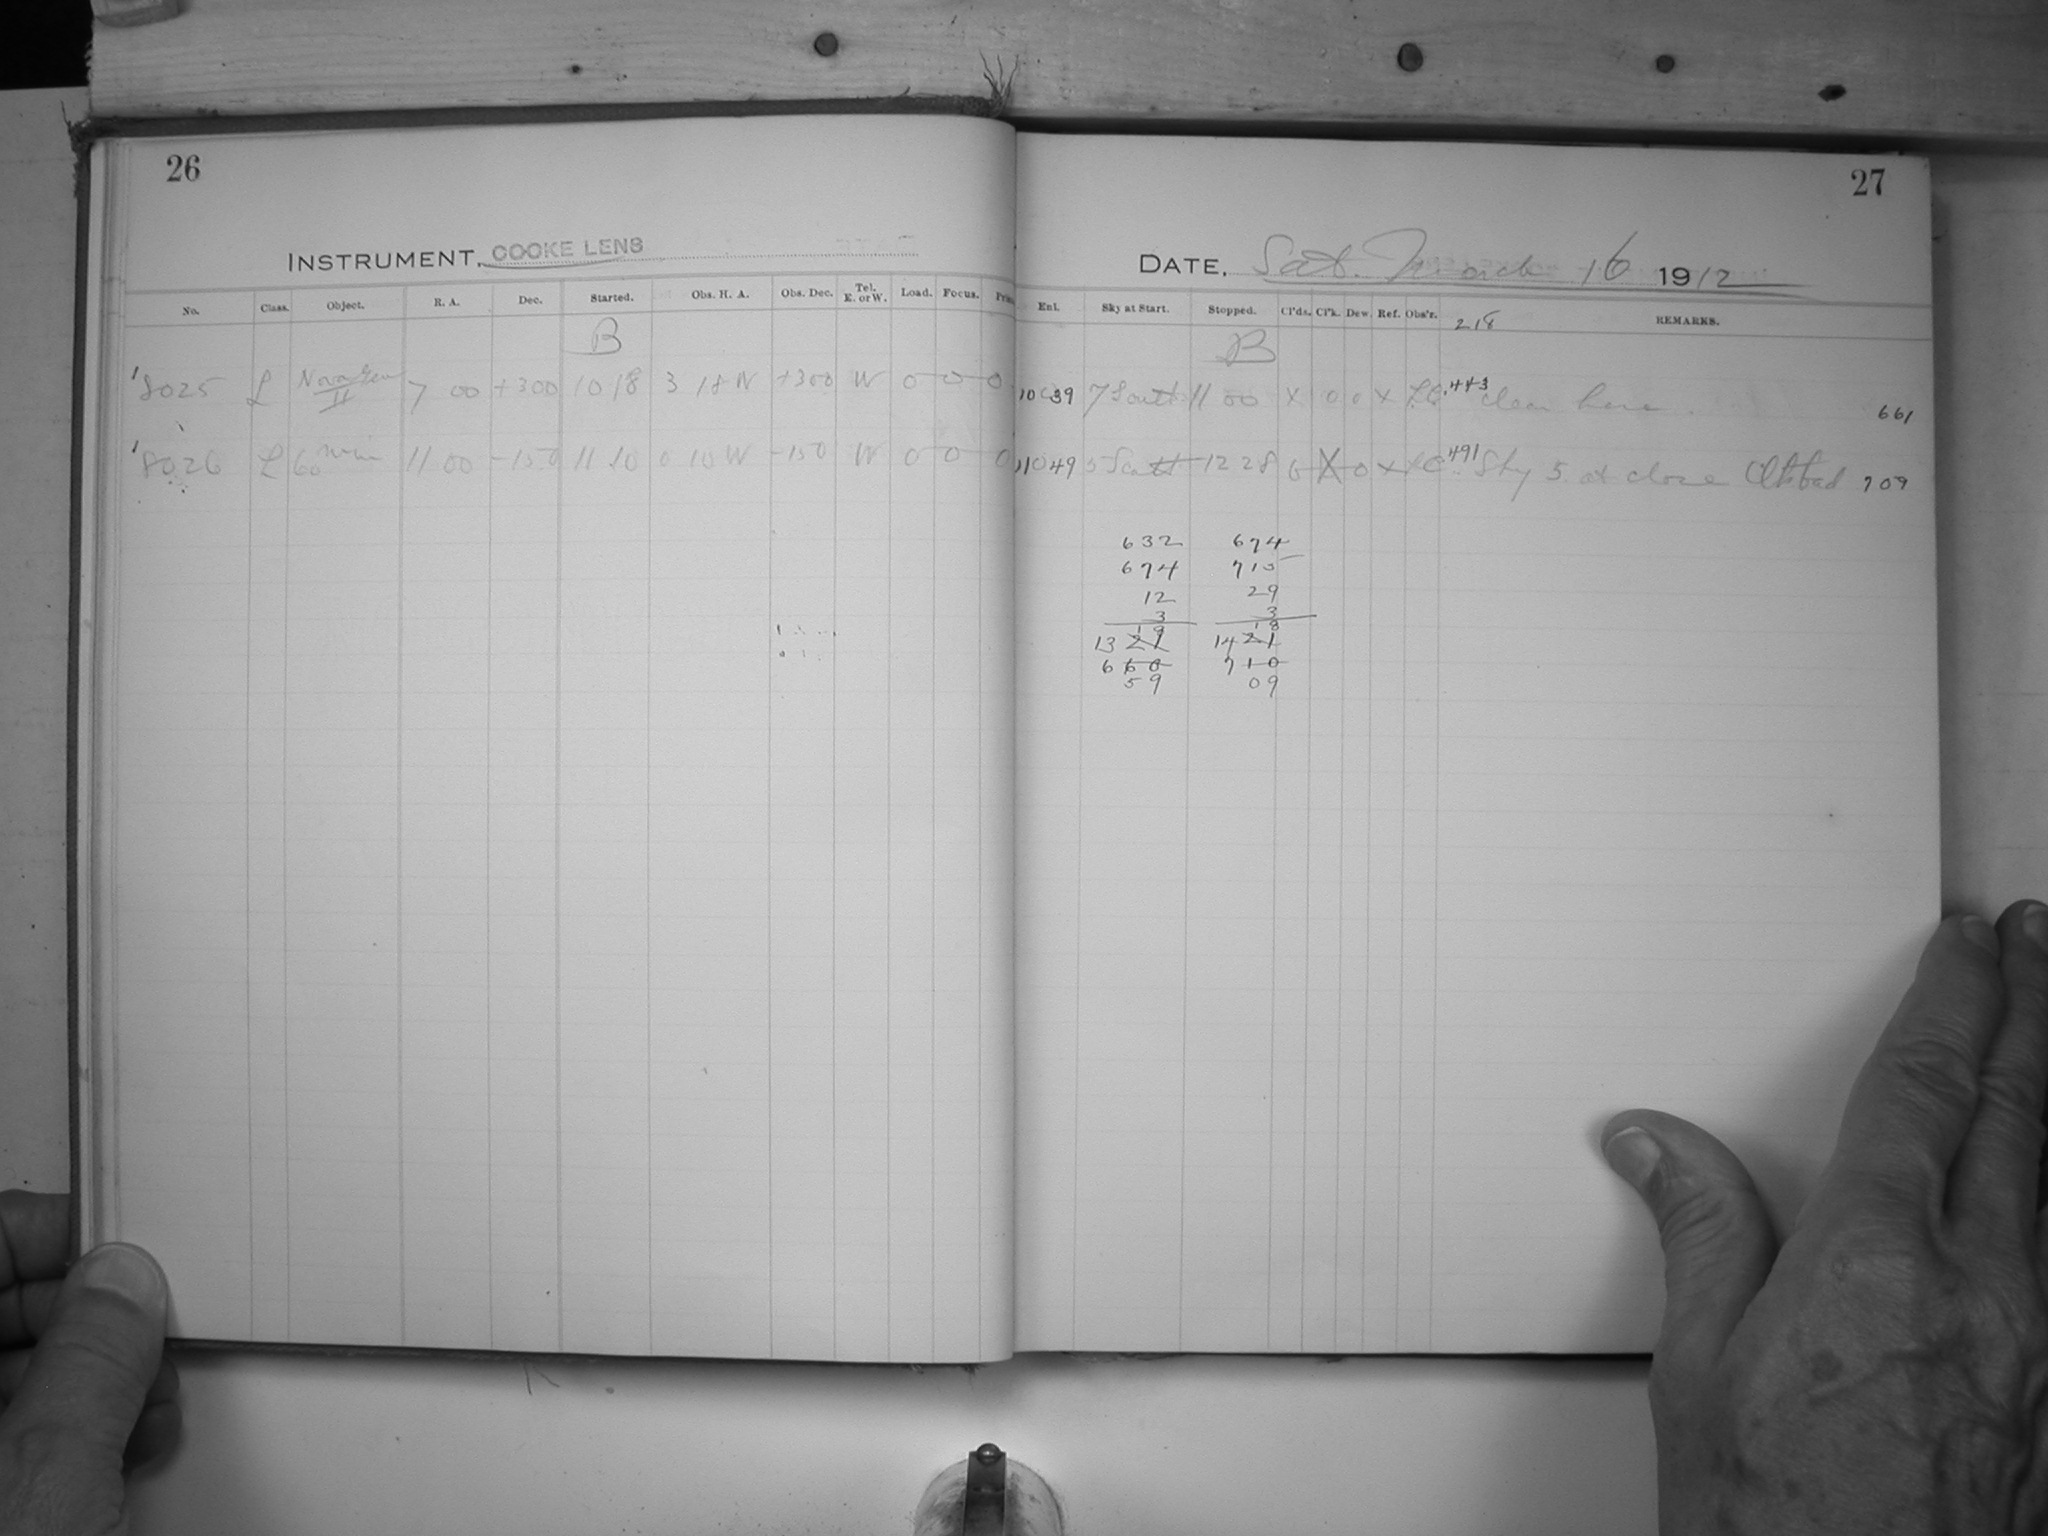 26
INSTRUMENT. COOKE LENS
No. Class. Object. R. A. Dec. Started. Obs. H. A. Obs. Dec. Tel. E. or W. Load. Focus.
B
8025 L Nova Gem II 7 00 +300 10 18 3 18 W +300 W 0 0 0
8026 L 60 min 11 00 -150 11 10 0 10 W -150 W 0 0 0
27
DATE, Sat. March 16 1912
Enl. Sky at Start. Stopped. Cl'ds. Cl'k. Dew. Ref. Obs'r. 218 REMARKS.
B
39 7 South 11 00 X 0 0 X .443 clear here. 661
49 5 12 28 X 0 X .491 Sky 5 at close 709
632 674
674 710
12 29
3 3
19 18
13 21 14 21
6 60 7 10
59 09